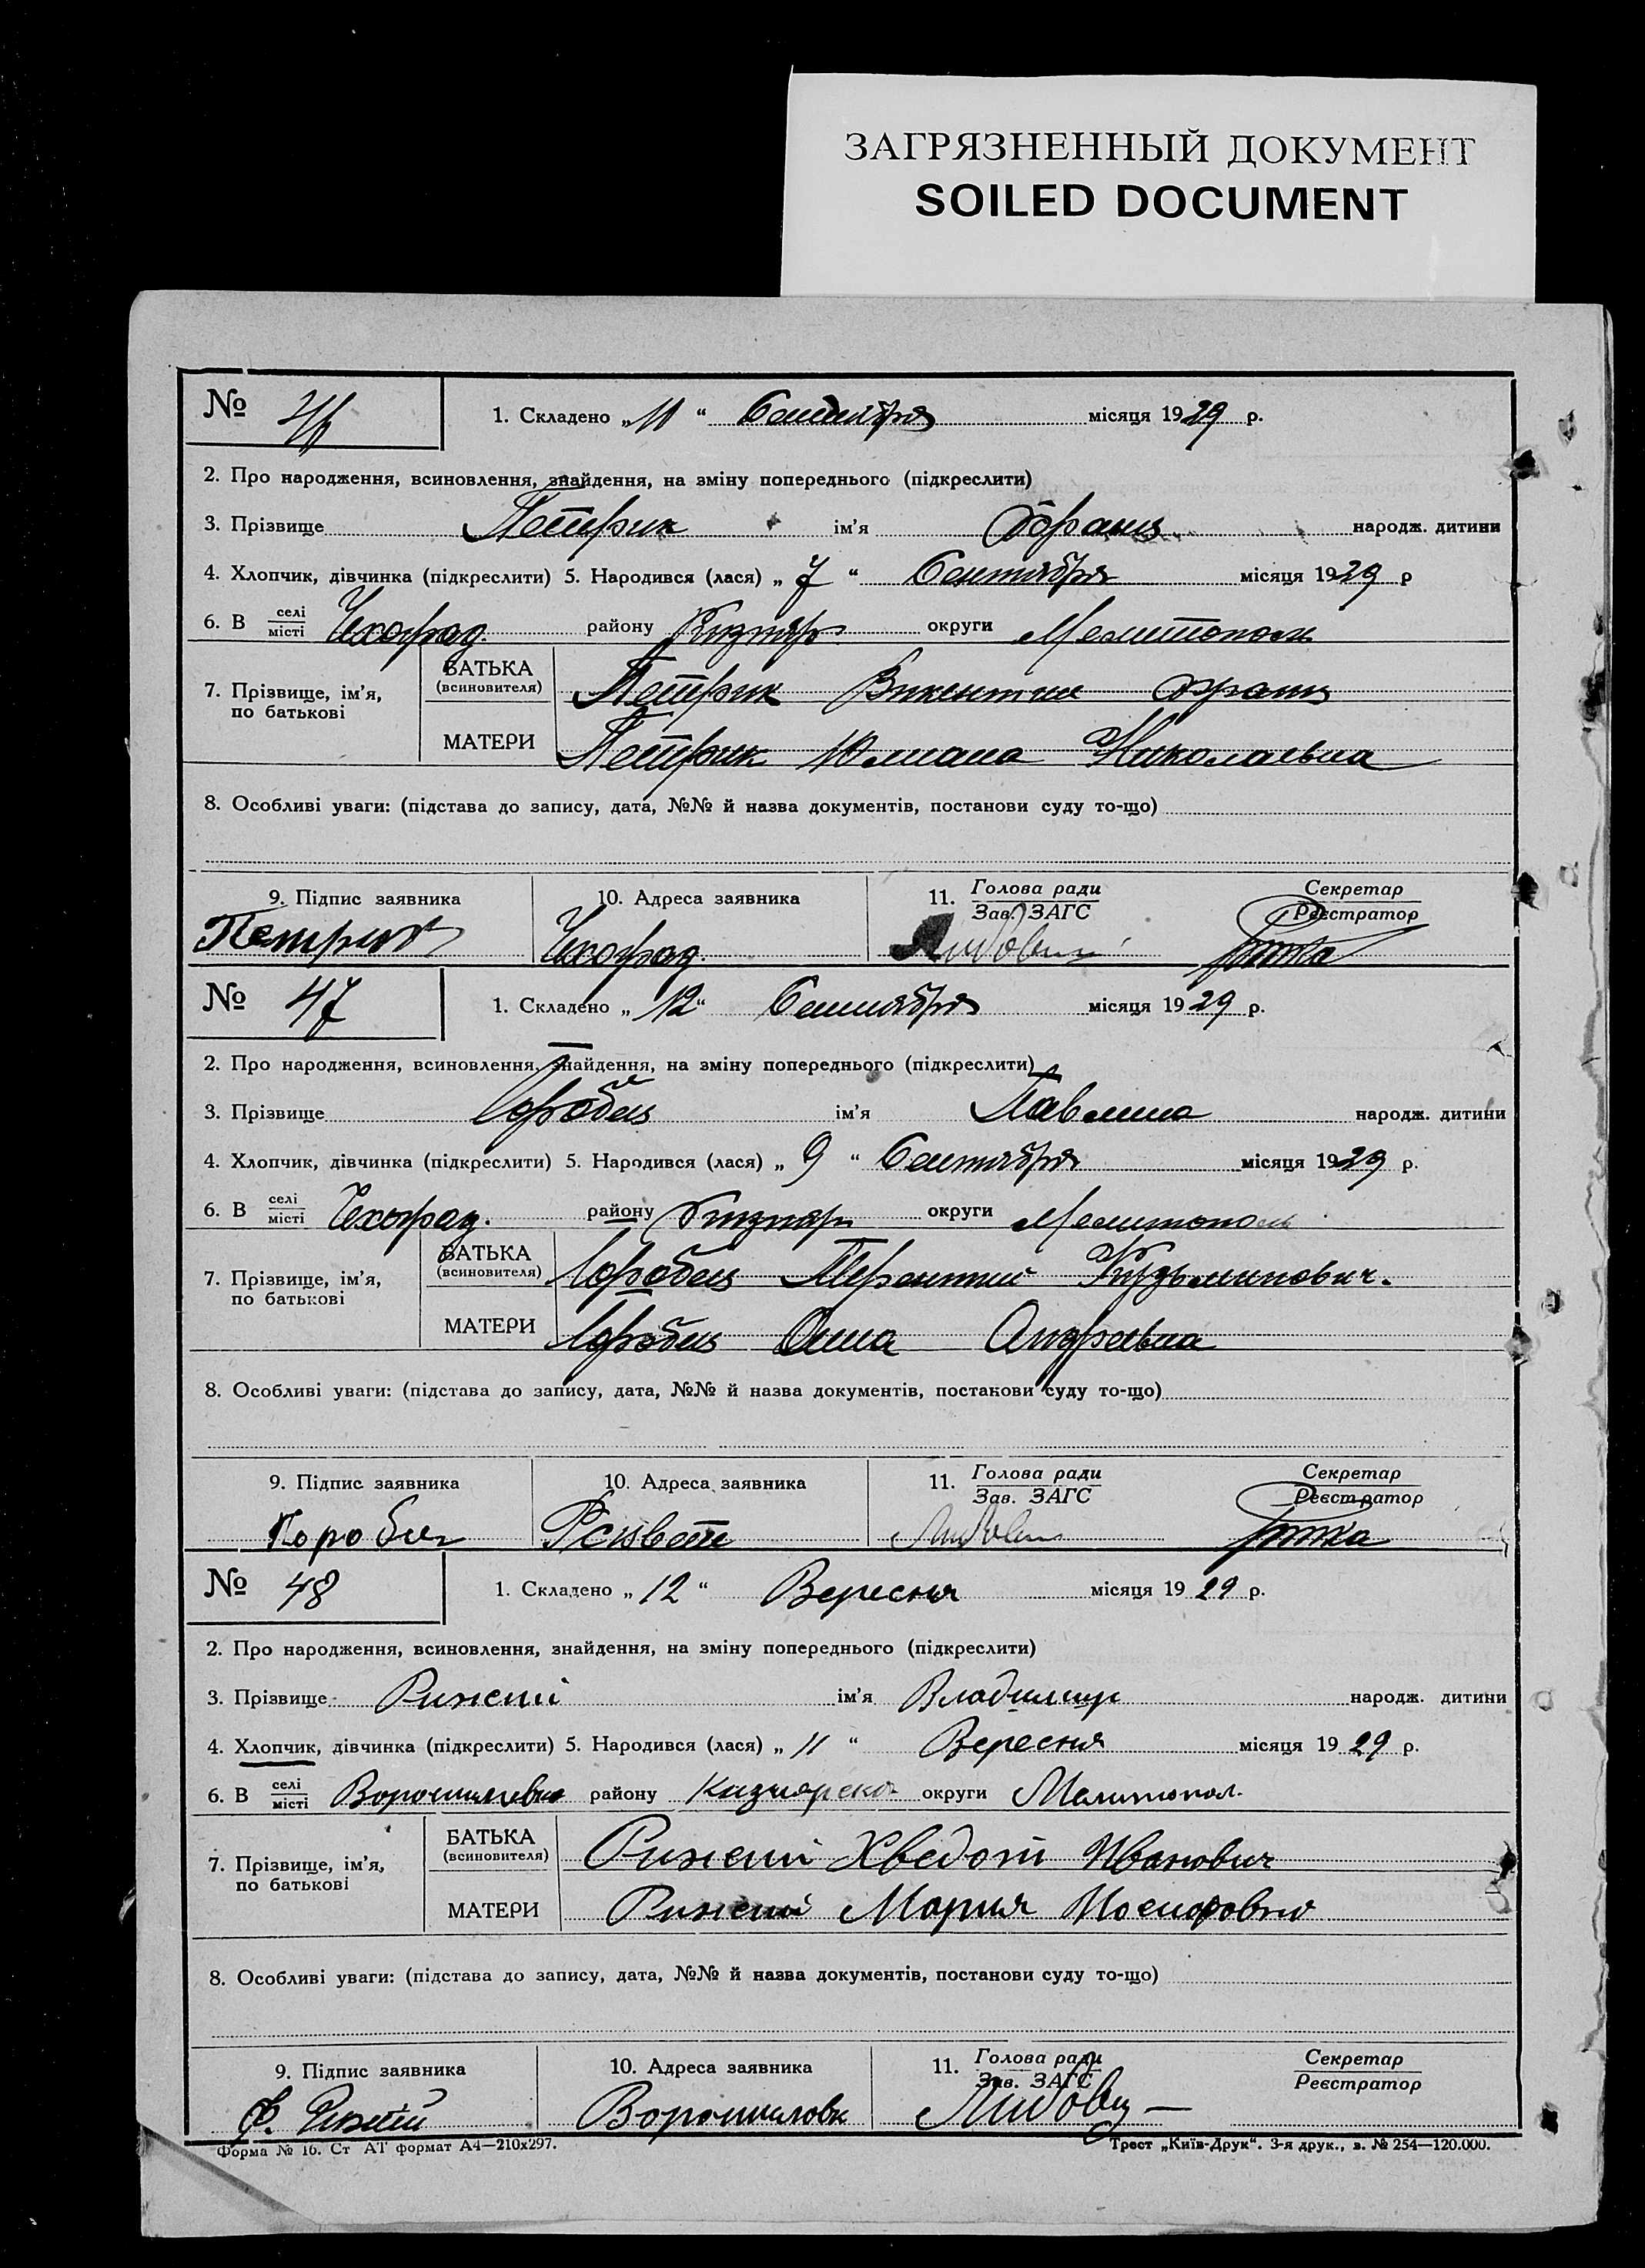 ЗАГРЯЗНЕННЫЙ ДОКУМЕНТ
SOILED DOCUMENT
№ 46 1. Складено „11“ Сентября місяця 1929 р.
2. Про народження, всиновлення, знайдення, на зміну попереднього (підкреслити)
3. Прізвище Петрик ім'я Франц народж. дитини
4. Хлопчик, дівчинка (підкреслити) 5. Народився (лася) „7“ Сентября місяця 1929 р
6. В селі/місті Чехоград району Кизияр округи Мелитополь
7. Прізвище, ім'я, по батькові БАТЬКА (всиновителя) Петрик Викентие Франц
МАТЕРИ Петрик Юлиана Николаевна
8. Особливі уваги: (підстава до запису, дата, №№ й назва документів, постанови суду то-що)
9. Підпис заявника 10. Адреса заявника 11. Голова ради/Зав. ЗАГС Секретар/Реєстратор
Петрик Чехоград
№ 47 1. Складено „12“ Сентября місяця 1929 р.
2. Про народження, всиновлення, знайдення, на зміну попереднього (підкреслити)
3. Прізвище ім'я Павлина народж. дитини
4. Хлопчик, дівчинка (підкреслити) 5. Народився (лася) „9“ Сентября місяця 1929 р.
6. В селі/місті Чехоград. району Кизияр округи Мелитополь
7. Прізвище, ім'я, по батькові БАТЬКА (всиновителя) Терентий Кузьминович.
МАТЕРИ Анна Андреевна
8. Особливі уваги: (підстава до запису, дата, №№ й назва документів, постанови суду то-що)
9. Підпис заявника 10. Адреса заявника 11. Голова ради/Зав. ЗАГС Секретар/Реєстратор
№ 48 1. Складено „12“ Вересня місяця 1929 р.
2. Про народження, всиновлення, знайдення, на зміну попереднього (підкреслити)
3. Прізвище Рижий ім'я Владимир народж. дитини
4. Хлопчик, дівчинка (підкреслити) 5. Народився (лася) „11“ Вересня місяця 1929 р.
6. В селі/місті Ворошиловка району Кизиярско округи Мелитопол.
7. Прізвище, ім'я, по батькові БАТЬКА (всиновителя) Рижий Хведот Иванович
МАТЕРИ Рижий Мария Иосифовна
8. Особливі уваги: (підстава до запису, дата, №№ й назва документів, постанови суду то-що)
9. Підпис заявника 10. Адреса заявника 11. Голова ради/Зав. ЗАГС Секретар/Реєстратор
Ф. Рижий Ворошиловк
Форма № 16. Ст АТ формат А4—210х297. Трест „Київ-Друк“. 3-я друк., з. № 254—120.000.